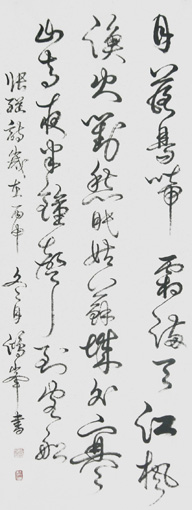 月落烏啼霜滿天江楓
漁火對愁眠姑蘇城外寒
山寺夜半鐘聲到客船
張繼詩歲在丙申冬月鴻峯書